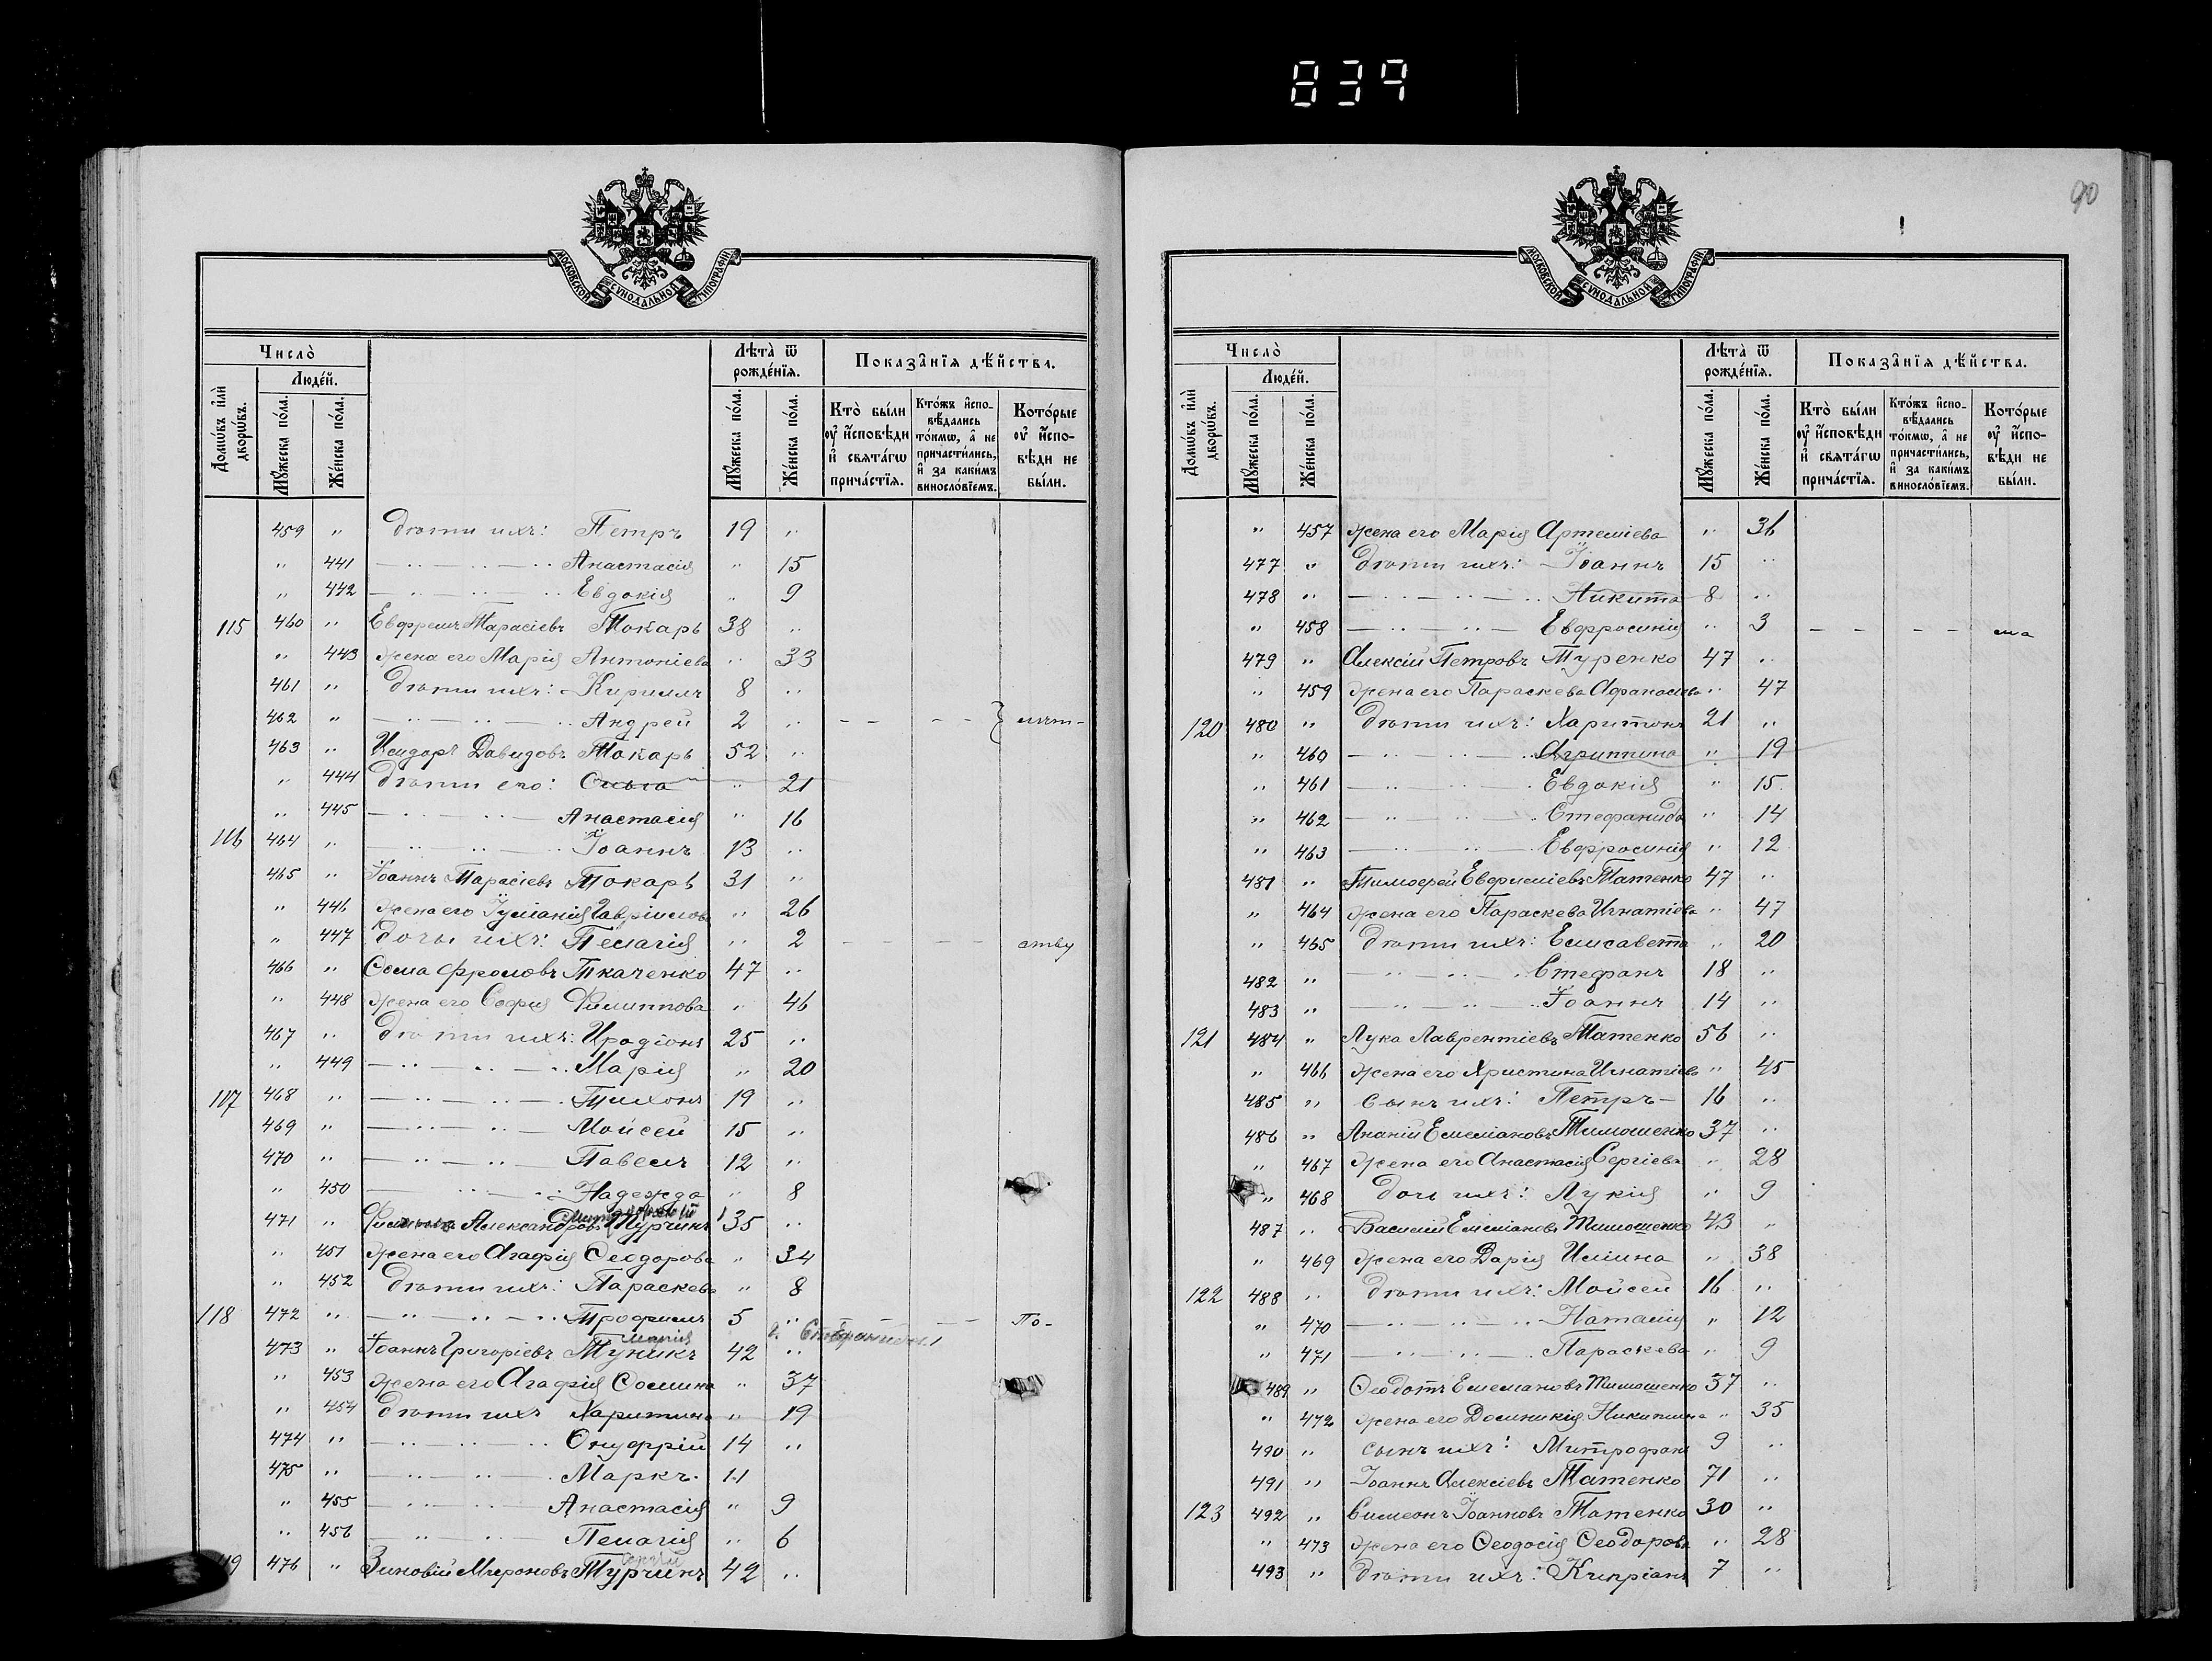 839
90
МОСКОВСКОЙ СѴНОДАЛЬНОЙ ТИПОГРАФІИ
Число̀
Людей.
Домѡвъ и҆лѝ дворѡвъ.
Мꙋжеска по́ла.
Же́нска по́ла.
Лѣта̀ ѿ рожде́нїѧ.
Мꙋжеска по́ла.
Же́нска по́ла.
Показа̑нїѧ дѣ́йства.
Кто̀ бы́ли ᲂу҆ и҆́сповѣди и҆ свѧта́гѡ прича́стїѧ.
Кто́жъ и҆спо-вѣ́дались то́кмѡ, а҆ не причасти́лись, и҆ за каки́мъ винослов́їемъ.
Кото́рые ᲂу҆ и҆́спо-вѣди не бы́ли.
459 " Дѣти ихъ: Петръ 19 "
" 441 Анастасія " 15
" 442 Евдокія " 9
115 460 " Евфремъ Тарасіевъ Токарь 38 "
" 443 жена его Марія Антоніева " 33
461 " Дѣти ихъ: Кириллъ 8 "
462 " Андрей 2 " - - - - лѣт-
463 " Исидоръ Давидовъ Токарь 52 "
" 444 Дѣти его: Ольга " 21
" 445 Анастасія " 16
116 464 " Іоаннъ 13 "
465 " Іоаннъ Тарасіевъ Токарь 31 "
" 446 жена его Іуліанія Гавріилова " 26
" 447 Дочь ихъ: Пелагія " 2 - - - - ству
466 " Ѳома Фроловъ Ткаченко 47 "
" 448 жена его Софія Филиппова " 46
467 " Дѣти ихъ: Иродіонъ 25 "
" 449 Марія " 20
117 468 " Тихонъ 19 "
469 " Мойсей 15 "
470 " Павелъ 12 "
" 450 Надежда " 8
471 " Александровъ Турчинъ 35 "
" 451 жена его Агафія Ѳеодорова " 34
" 452 Дѣти ихъ: Параскева " 8
118 472 " Трофимъ 5 " - - По-
473 " Іоаннъ Григоріевъ Туникъ 42 "
" 453 жена его Агафія Ѳомина " 37
" 454 Дѣти ихъ Харитина " 19
474 " Онуфрій 14 "
475 " Маркъ 11
" 455 Анастасія " 9
" 456 Пелагія " 6
119 476 " Зиновій Мироновъ Турчинъ 42 "
Число̀
Людей.
Домѡвъ и҆лѝ дворѡвъ.
Мꙋжеска по́ла.
Же́нска по́ла.
Лѣта̀ ѿ рожде́нїѧ.
Мꙋжеска по́ла.
Же́нска по́ла.
Показа̑нїѧ дѣ́йства.
Кто̀ бы́ли ᲂу҆ и҆́сповѣди и҆ свѧта́гѡ прича́стїѧ.
Кто́жъ и҆спо-вѣ́дались то́кмѡ, а҆ не причасти́лись, и҆ за каки́мъ винослов́їемъ.
Кото́рые ᲂу҆ и҆́спо-вѣди не бы́ли.
" 457 жена его Марія Артеміева " 36
477 " Дѣти ихъ: Іоаннъ 15 "
478 " Никита 8 "
" 458 Евфросинія " 3 - - - - ма
479 " Алексій Петровъ Туренко 47 "
" 459 жена его Параскева Афанасіева " 47
120 480 " Дѣти ихъ: Харитонъ 21 "
" 460 Агриппина " 19
" 461 Евдокія " 15
" 462 Стефанида " 14
" 463 Евфросинія " 12
481 " Тимофей Евфиміевъ Татенко 47 "
" 464 жена его Параскева Игнатіева " 47
" 465 Дѣти ихъ: Елисавета " 20
482 " Стефанъ 18 "
483 " Іоаннъ 14 "
121 484 " Лука Лаврентіевъ Татенко 56 "
" 466 жена его Христина Игнатіева " 45
485 " сынъ ихъ: Петръ 16 "
486 " Ананій Емеліановъ Тимошенко 37 "
" 467 жена его Анастасія Сергіева " 28
" 468 Дочь ихъ: Лукія " 9
487 " Василій Емеліановъ Тимошенко 43 "
" 469 жена его Дарія Илiина " 38
122 488 " Дѣти ихъ: Мойсей 16 "
" 470 Наталія " 12
" 471 Параскева " 9
489 " Ѳеодотъ Емеліановъ Тимошенко 37 "
" 472 жена его Домникія Никитина " 35
490 " сынъ ихъ: Митрофанъ 9 "
491 " Іоаннъ Алексіевъ Татенко 71 "
123 492 " Симеонъ Іоанновъ Татенко 30 "
" 473 жена его Ѳеодосія Ѳеодорова " 28
493 " Дѣти ихъ: Кипріанъ 7 "